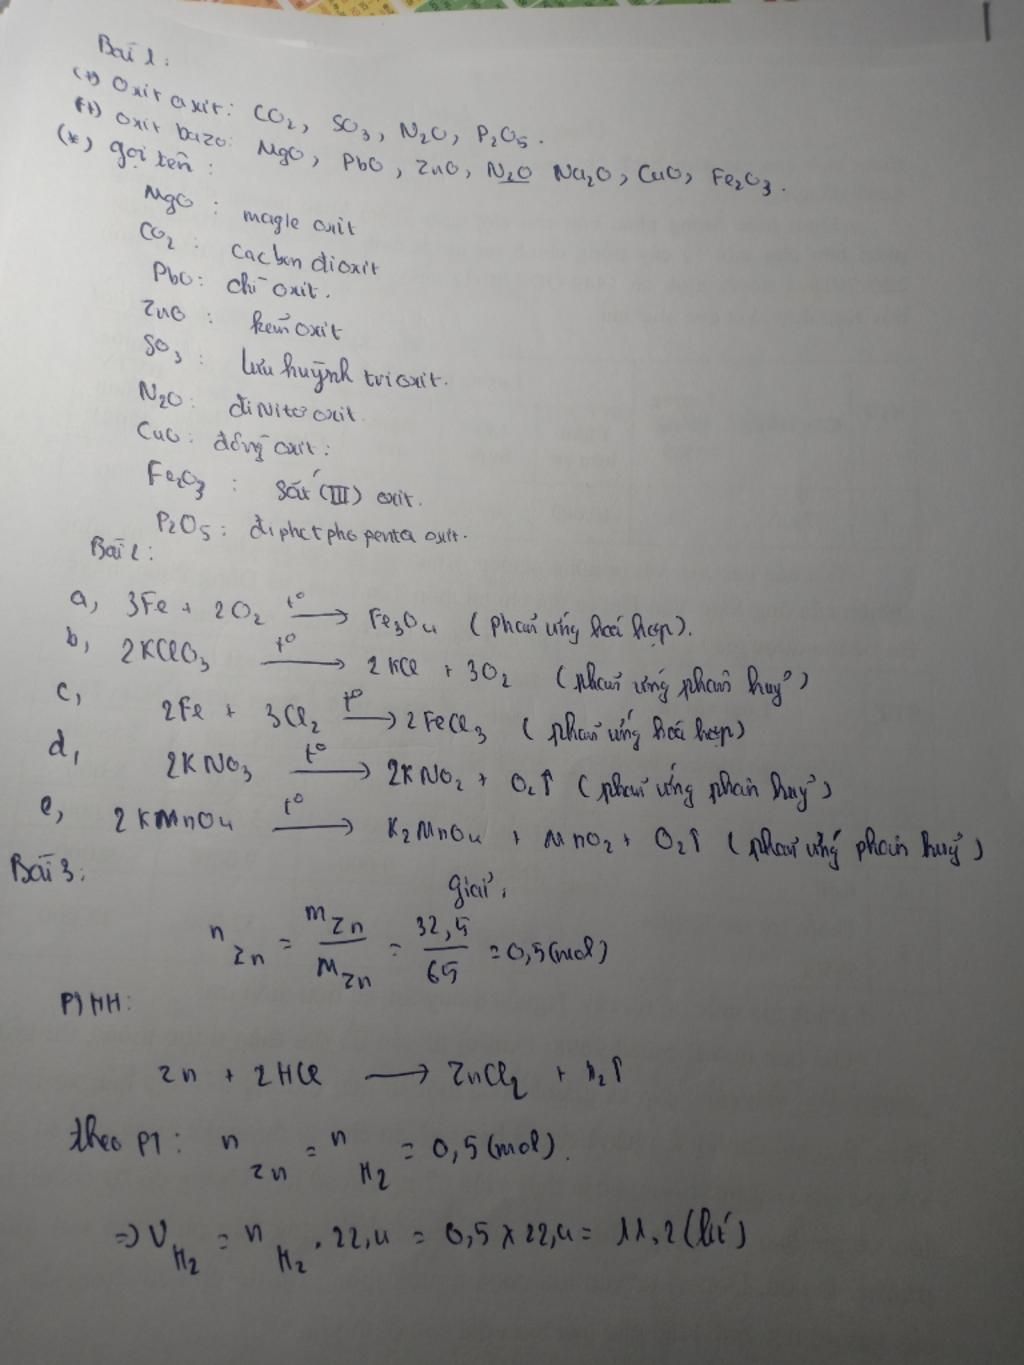 Bài 1:
(+) Oxit axit: CO2, SO3, N2O, P2O5.
(+) oxit bazo: MgO, PbO, ZnO, N2O Na2O, CuO, Fe2O3.
(*) gọi tên:
MgO : magie oxit
CO2 : cacbon đioxit
PbO: chì oxit.
ZnO : kẽm oxit
SO3 : lưu huỳnh tri oxit.
N2O: đi Nitơ oxit.
CuO: đồng oxit:
Fe2O3 : Sắt (III) oxit.
P2O5: điphotpho penta oxit.
Bài 2:
a, 3Fe + 2O2 t° → Fe3O4 (phản ứng hoá hợp).
b, 2KClO3 t° → 2KCl + 3O2 (phản ứng phân huỷ)
c, 2Fe + 3Cl2 t° → 2FeCl3 (phản ứng hoá hợp)
d, 2KNO3 t° → 2KNO2 + O2↑ (phản ứng phân huỷ)
e, 2KMnO4 t° → K2MnO4 + MnO2 + O2↑ (phản ứng phân huỷ)
Bài 3:
giải:
nZn = mZn/MZn = 32,5/65 = 0,5(mol)
PTHH:
Zn + 2HCl → ZnCl2 + H2↑
theo PT: nZn = nH2 = 0,5(mol).
=> VH2 = nH2 . 22,4 = 0,5 x 22,4 = 11,2(lít)